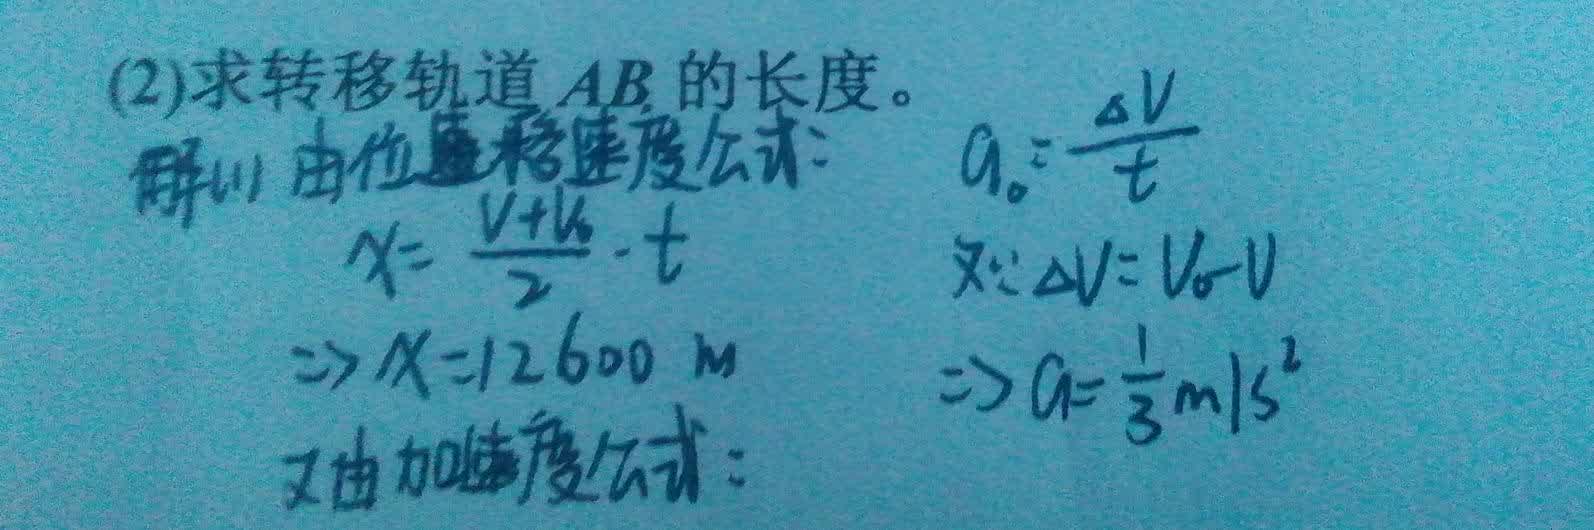 (2)求转移轨道 AB 的长度。
解(1) 由位移速度公式:
x = (V+V₀)/2 · t
=> x=12600 m
又由加速度公式:
a₀ = ΔV/t
又∵ ΔV = V₀-V
=> a = 1/3 m/s²